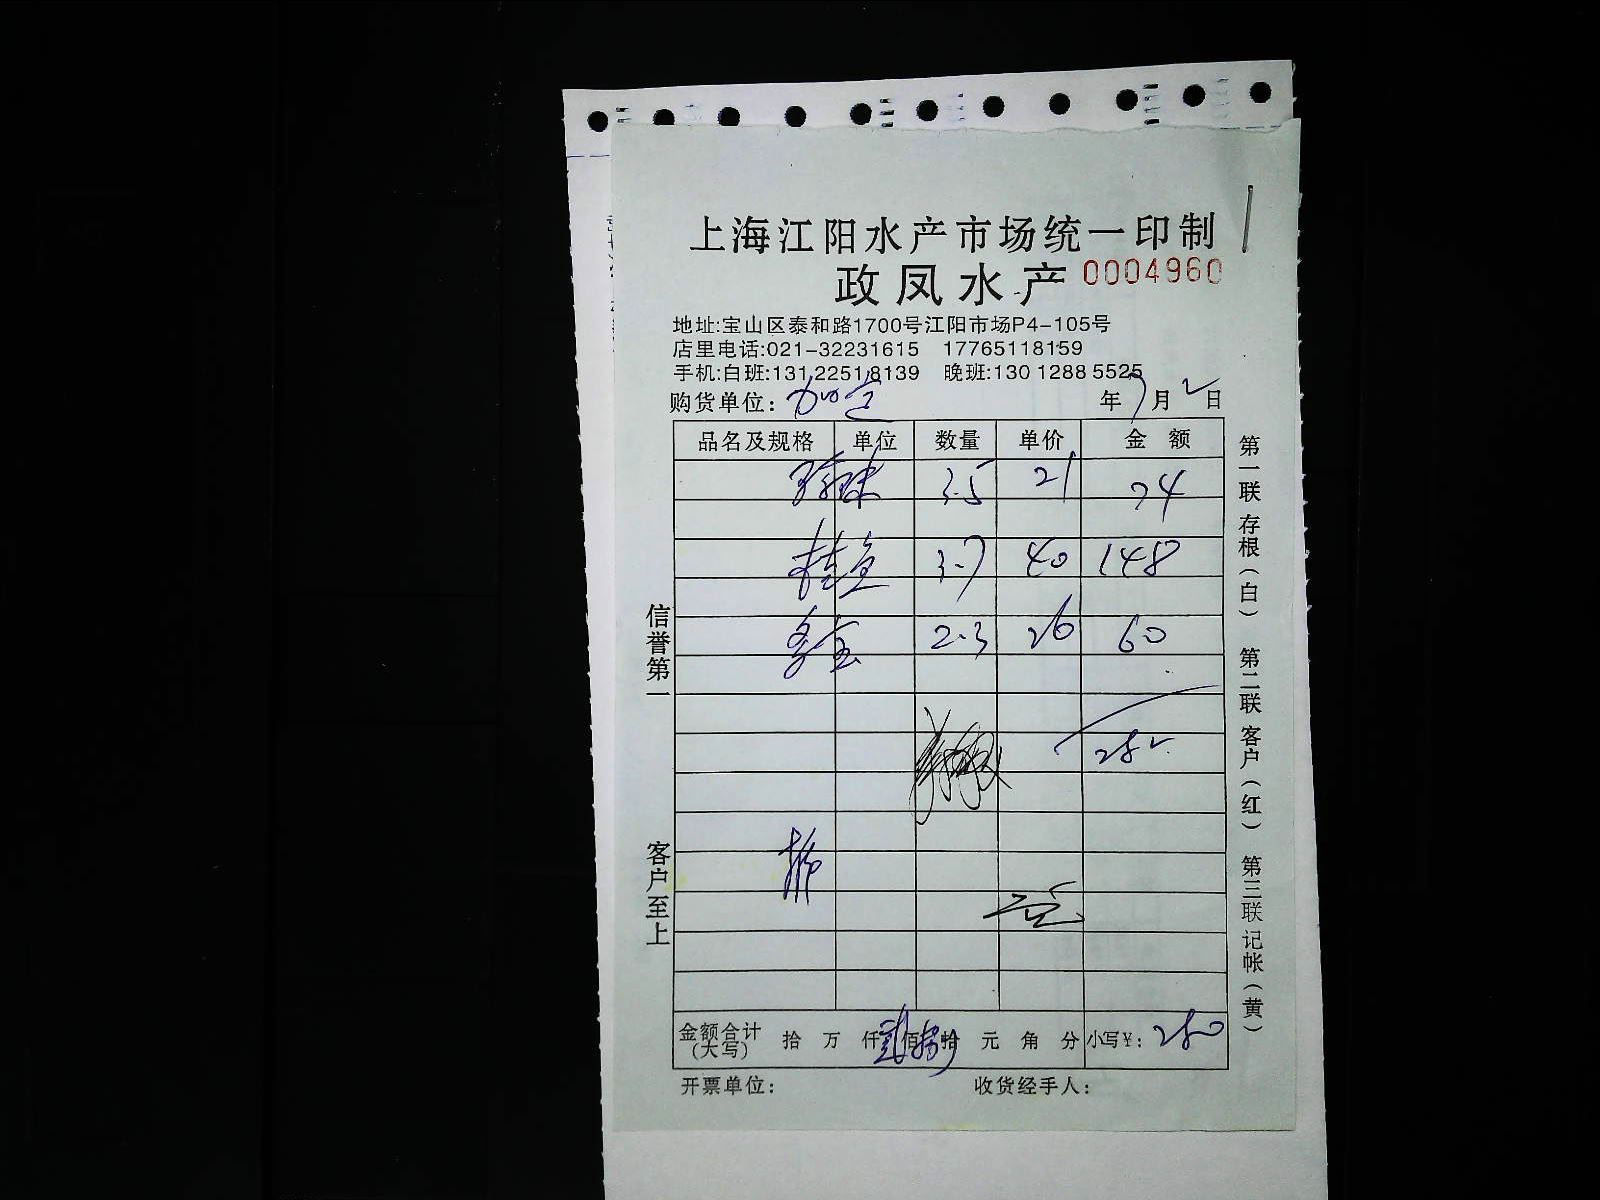 上海江阳水产市场统一印制
政凤水产 0004960
地址:宝山区泰和路1700号江阳市场P4-105号
店里电话:021-32231615 17765118159
手机:白班:131 2251 8139 晚班:130 1288 5525
购货单位: 加定 年7月2日
品名及规格 单位 数量 单价 金额
3.5 21 74
桂鱼 3.7 40 148
多宝 2.3 26 60
282
金额合计(大写) 拾 万 仟 贰佰捌拾 元 角 分 小写¥: 280
开票单位: 收货经手人:
信誉第一
客户至上
第一联存根(白) 第二联客户(红) 第三联记帐(黄)